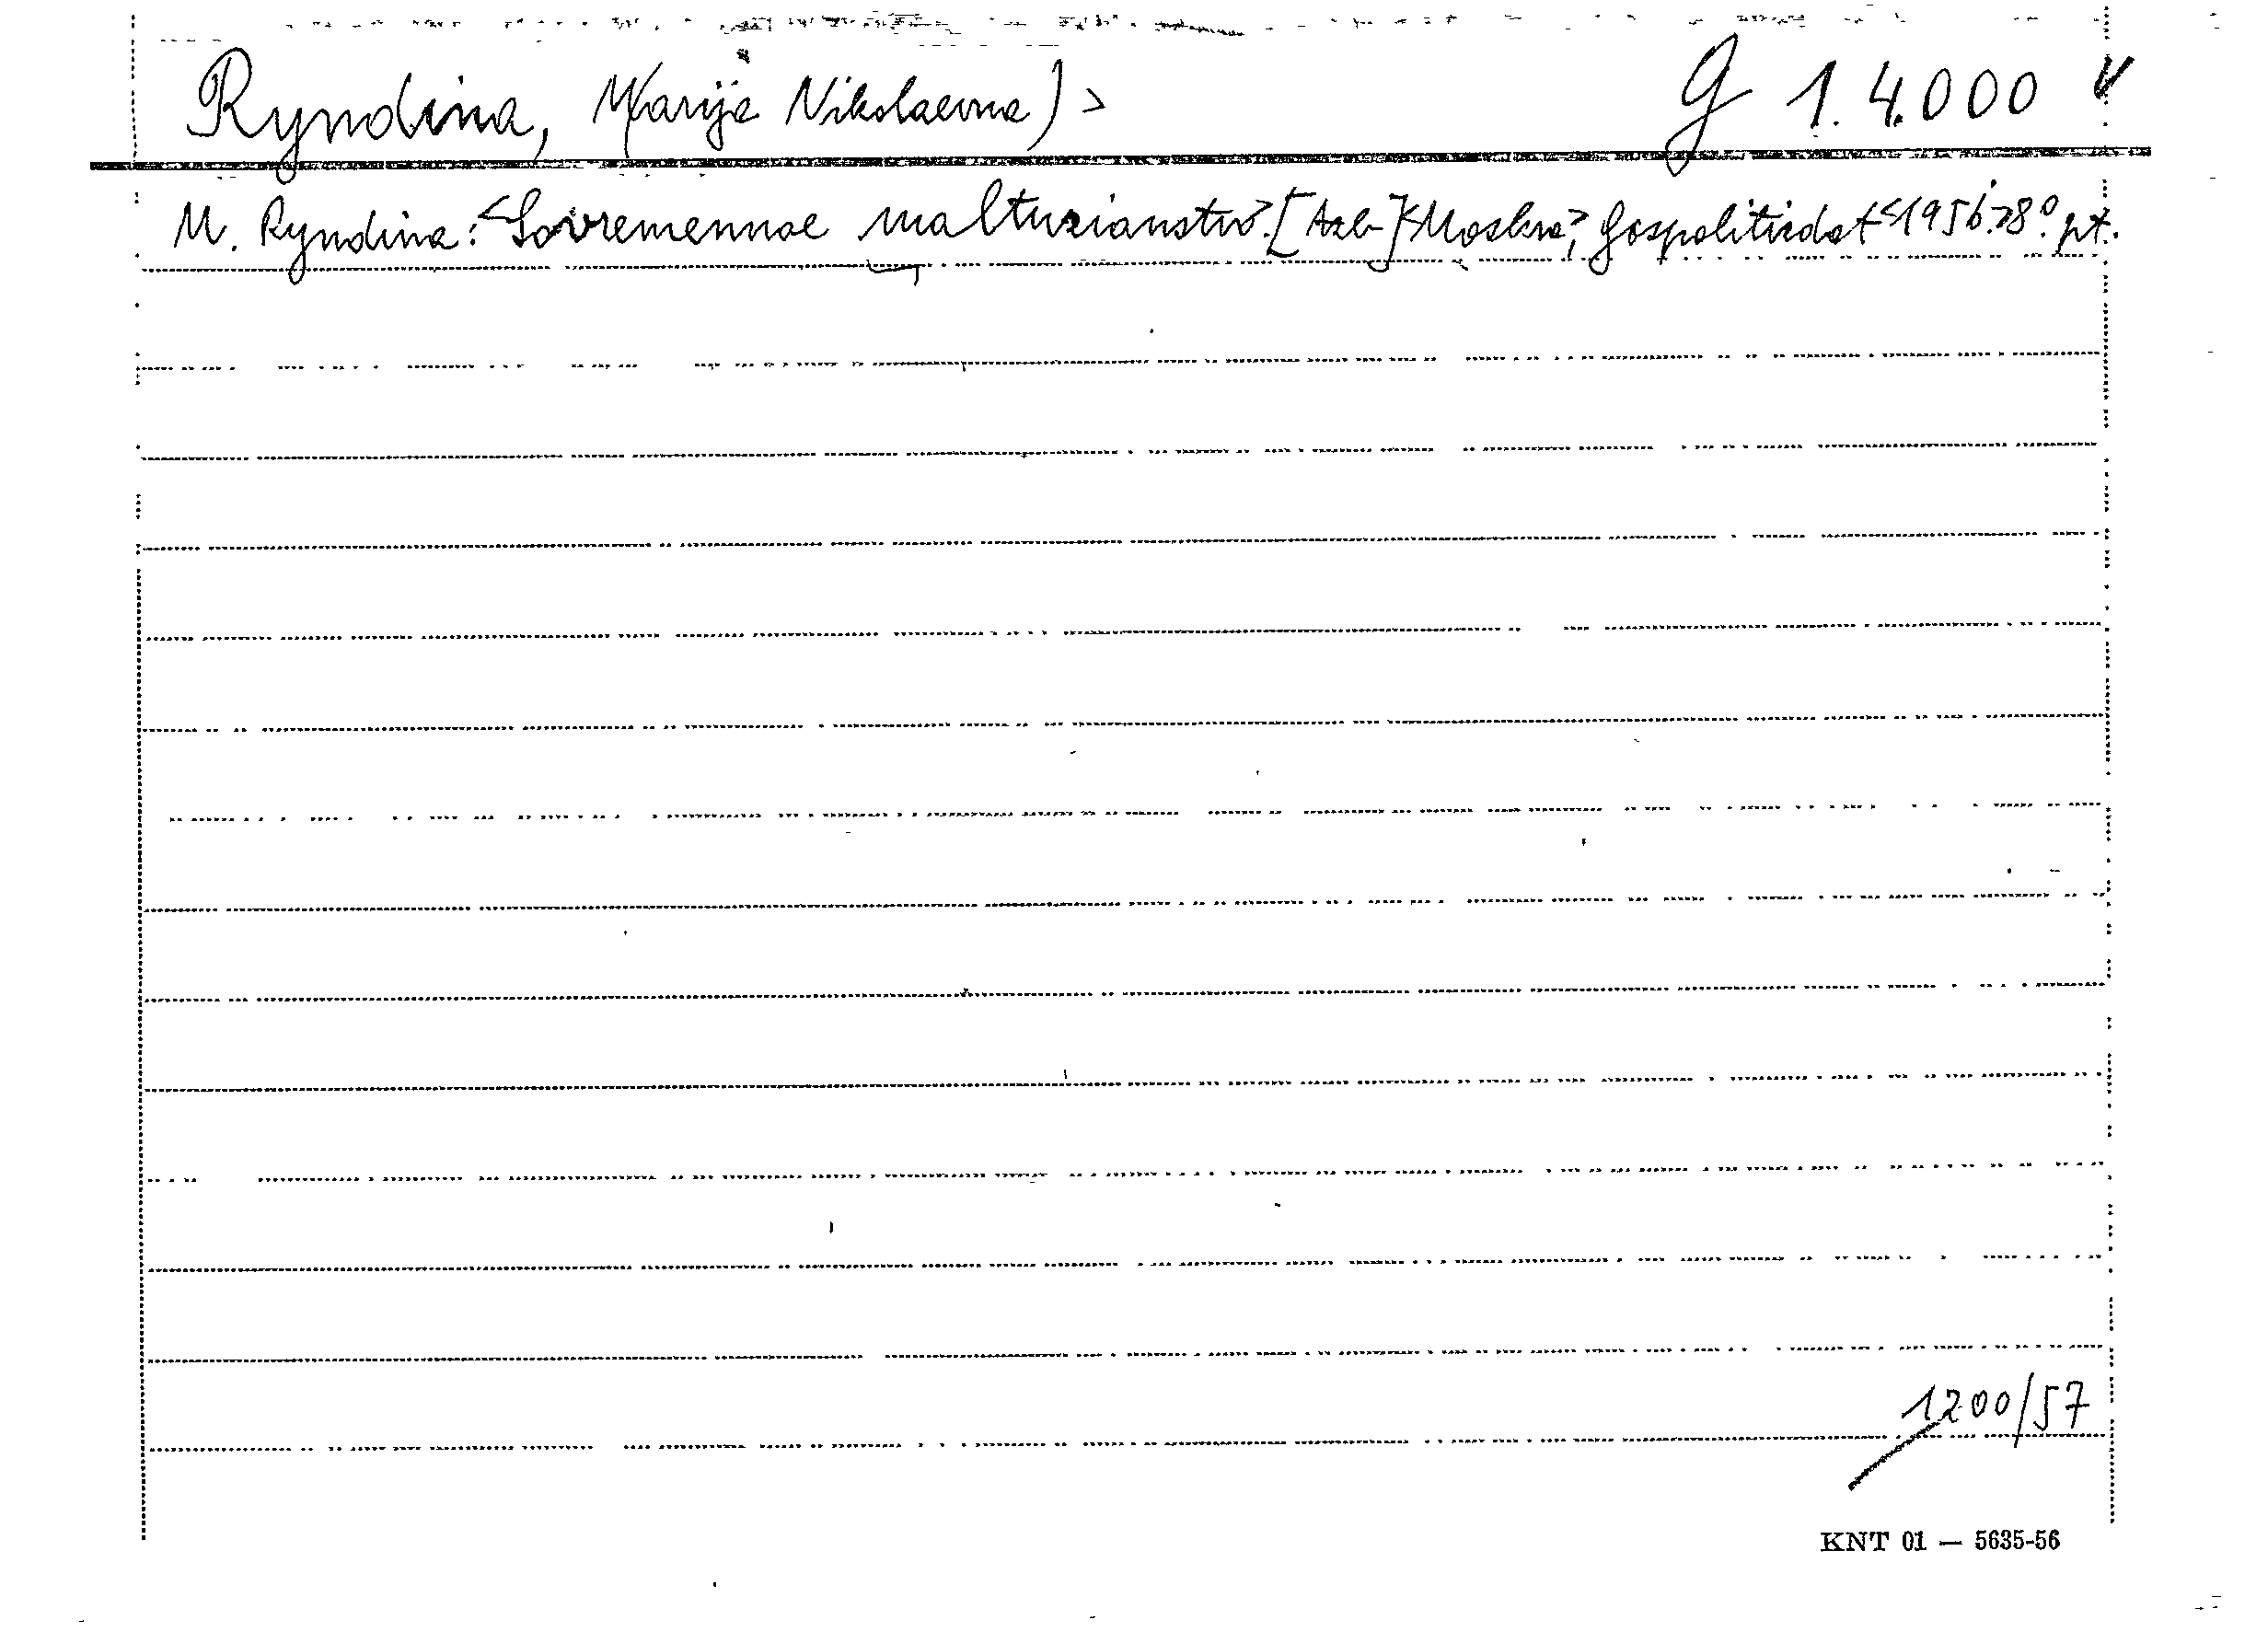 Ryndina, Marija Nikolaevna)> G 1.4.000
M. Ryndina: <Sovremennoe mal'tuzianstvo>. [Azb-] <Moskva>, Gospolitizdat <1956.> 8° pt.
1200/57
KNT 01 — 5635-56